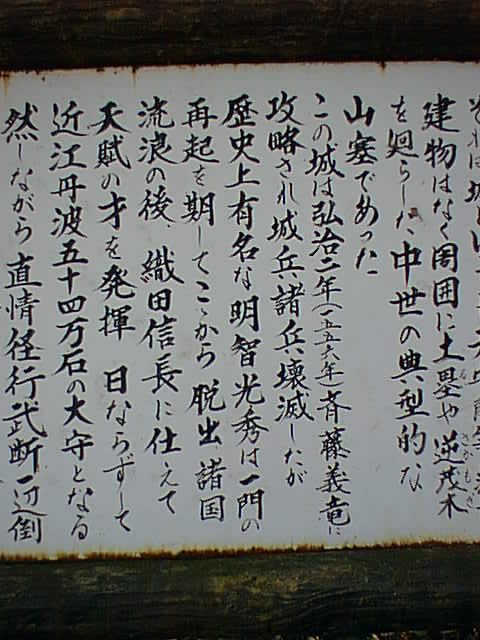 それは城といっ
建物はなく周囲に土塁や逆茂木
さかもぎ
を廻らした中世の典型的な
山塞であった
この城は弘治二年(一五五六年)斉藤義竜に
攻略され城兵諸兵壊滅したが
歴史上有名な明智光秀は一門の
再起を期してこゝから脱出、諸国
流浪の後、織田信長に仕えて
天賦の才を発揮 日ならずして
近江丹波五十四万石の大守となる
然しながら直情径行武断一辺倒